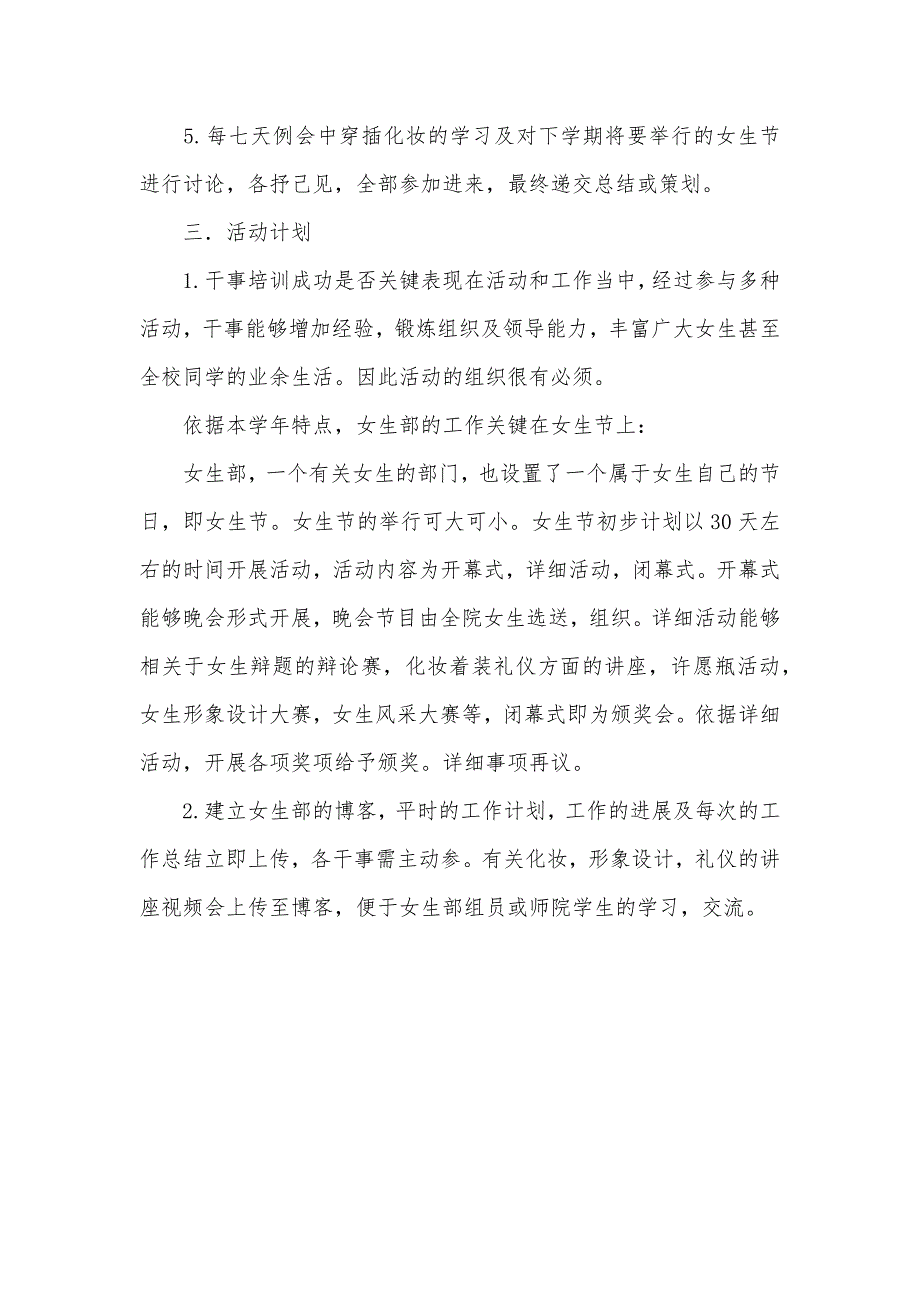 5.每七天例会中穿插化妆的学习及对下学期将要举行的女生节
进行讨论，各抒己见，全部参加进来，最终递交总结或策划。
三．活动计划
1.干事培训成功是否关键表现在活动和工作当中，经过参与多种
活动，干事能够增加经验，锻炼组织及领导能力，丰富广大女生甚至
全校同学的业余生活。因此活动的组织很有必须。
依据本学年特点，女生部的工作关键在女生节上：
女生部，一个有关女生的部门，也设置了一个属于女生自己的节
日，即女生节。女生节的举行可大可小。女生节初步计划以 30 天左
右的时间开展活动，活动内容为开幕式，详细活动，闭幕式。开幕式
能够晚会形式开展，晚会节目由全院女生选送，组织。详细活动能够
相关于女生辩题的辩论赛，化妆着装礼仪方面的讲座，许愿瓶活动，
女生形象设计大赛，女生风采大赛等，闭幕式即为颁奖会。依据详细
活动，开展各项奖项给予颁奖。详细事项再议。
2.建立女生部的博客，平时的工作计划，工作的进展及每次的工
作总结立即上传，各干事需主动参。有关化妆，形象设计，礼仪的讲
座视频会上传至博客，便于女生部组员或师院学生的学习，交流。